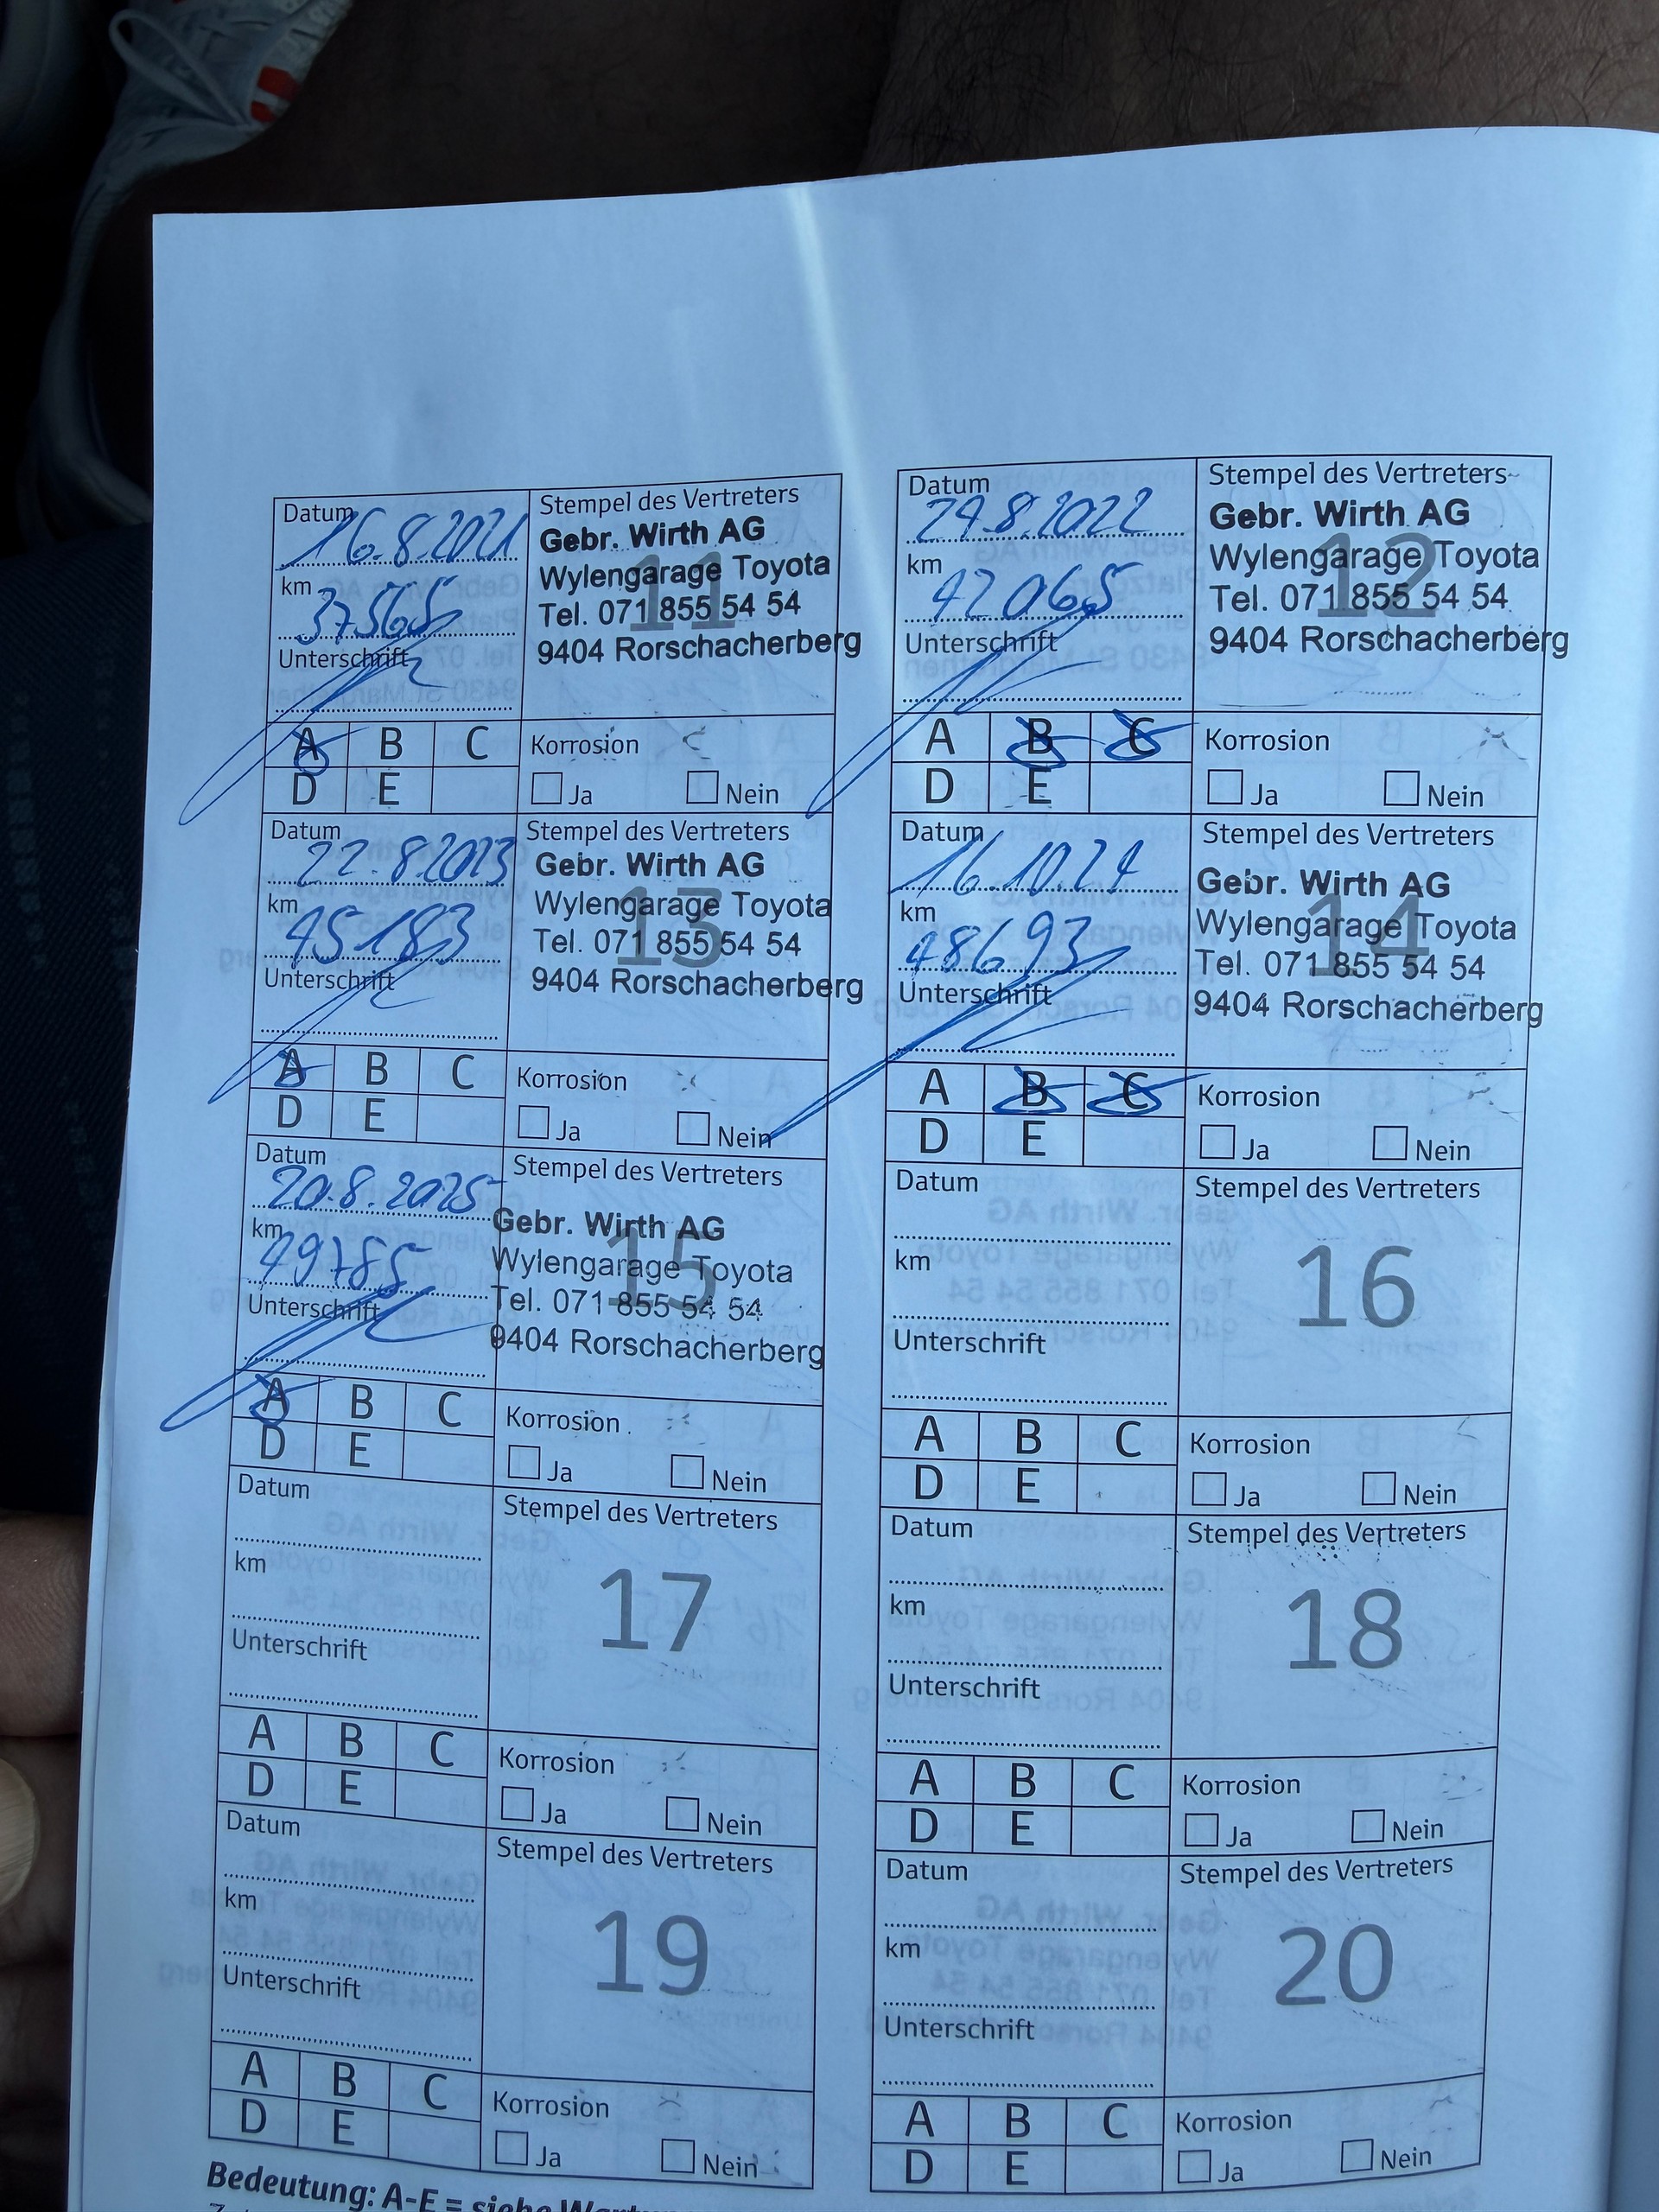 Datum
16.8.2021
km
37565
Unterschrift
Stempel des Vertreters
11
Gebr. Wirth AG
Wylengarage Toyota
Tel. 071 855 54 54
9404 Rorschacherberg
A B C
D E
Korrosion
Ja Nein
Datum
29.8.2022
km
42065
Unterschrift
Stempel des Vertreters
12
Gebr. Wirth AG
Wylengarage Toyota
Tel. 071 855 54 54
9404 Rorschacherberg
A B C
D E
Korrosion
Ja Nein
Datum
22.8.2023
km
45183
Unterschrift
Stempel des Vertreters
13
Gebr. Wirth AG
Wylengarage Toyota
Tel. 071 855 54 54
9404 Rorschacherberg
A B C
D E
Korrosion
Ja Nein
Datum
16.10.24
km
48693
Unterschrift
Stempel des Vertreters
14
Gebr. Wirth AG
Wylengarage Toyota
Tel. 071 855 54 54
9404 Rorschacherberg
A B C
D E
Korrosion
Ja Nein
Datum
20.8.2025
km
49785
Unterschrift
Stempel des Vertreters
15
Gebr. Wirth AG
Wylengarage Toyota
Tel. 071 855 54 54
9404 Rorschacherberg
A B C
D E
Korrosion
Ja Nein
Datum
km
Unterschrift
Stempel des Vertreters
16
A B C
D E
Korrosion
Ja Nein
Datum
km
Unterschrift
Stempel des Vertreters
17
A B C
D E
Korrosion
Ja Nein
Datum
km
Unterschrift
Stempel des Vertreters
18
A B C
D E
Korrosion
Ja Nein
Datum
km
Unterschrift
Stempel des Vertreters
19
A B C
D E
Korrosion
Ja Nein
Datum
km
Unterschrift
Stempel des Vertreters
20
A B C
D E
Korrosion
Ja Nein
Bedeutung: A-E = siehe